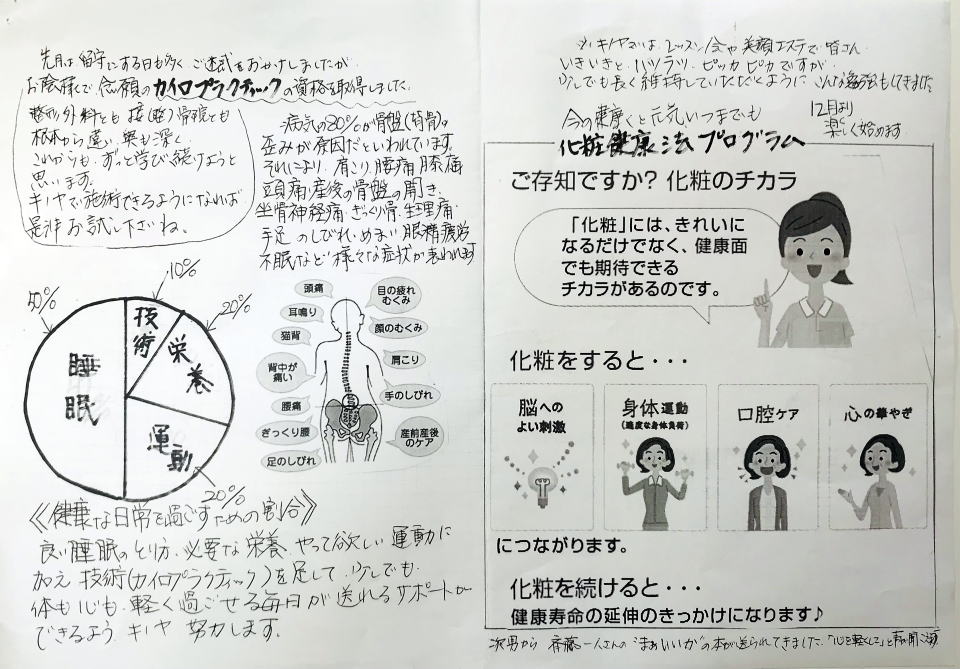 先月は留守にする日も多くご迷惑をおかけしましたが
お陰様で念願のカイロプラクティックの資格を取得しました。
整形外科とも接(整)骨院とも
根本から違い、奥も深く
これからも、ずっと学び続けようと
思います。
キノヤで施術できるようになれば
是非お試し下さいね。
病気の80%が骨盤(背骨)の
歪みが原因だといわれています。
それにより、肩こり、腰痛、膝痛
頭痛、産後の骨盤の開き、
坐骨神経痛、ぎっくり腰、生理痛、
手足のしびれ、めまい、眼精疲労
不眠など様々な症状が表われます
50%
10%
20%
技術
栄養
睡眠
運動
20%
頭痛
目の疲れ
むくみ
耳鳴り
顔のむくみ
猫背
肩こり
背中が
痛い
手のしびれ
腰痛
ぎっくり腰
産前産後
のケア
足のしびれ
《健康な日常を過ごすための割合》
良い睡眠のとり方、必要な栄養、やって欲しい運動に
加え 技術(カイロプラクティック)を足して、少しでも
体も心も、軽く過ごせる毎日が送れるサポートが
できるよう キノヤ 努力します。
キノヤでは、レッスン会や美顔エステで皆さん
いきいきと、ハツラツ、ピッカピカですが
少しでも長く維持していただくように、こんな勉強もしてきました
今の健康と元気いつまでも
12月より
楽しく始めます
化粧健康法プログラム
ご存知ですか? 化粧のチカラ
「化粧」には、きれいに
なるだけでなく、健康面
でも期待できる
チカラがあるのです。
化粧をすると・・・
脳への
よい刺激
身体運動
(適度な身体負荷)
口腔ケア
心の華やぎ
につながります。
化粧を続けると・・・
健康寿命の延伸のきっかけになります♪
次男から 斉藤一人さんの"まぁいいか"の本が送られてきました。「心を軽くして」と